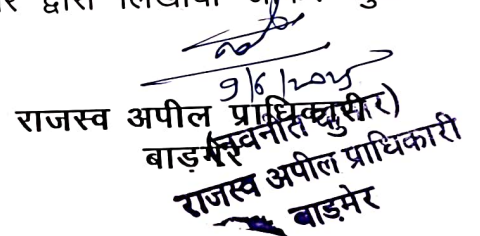 द्वारा लिखाया
9/6/2025
राजस्व अपील प्राधिकारी
(नवनीत कुमार)
बाड़मेर
राजस्व अपील प्राधिकारी
बाड़मेर